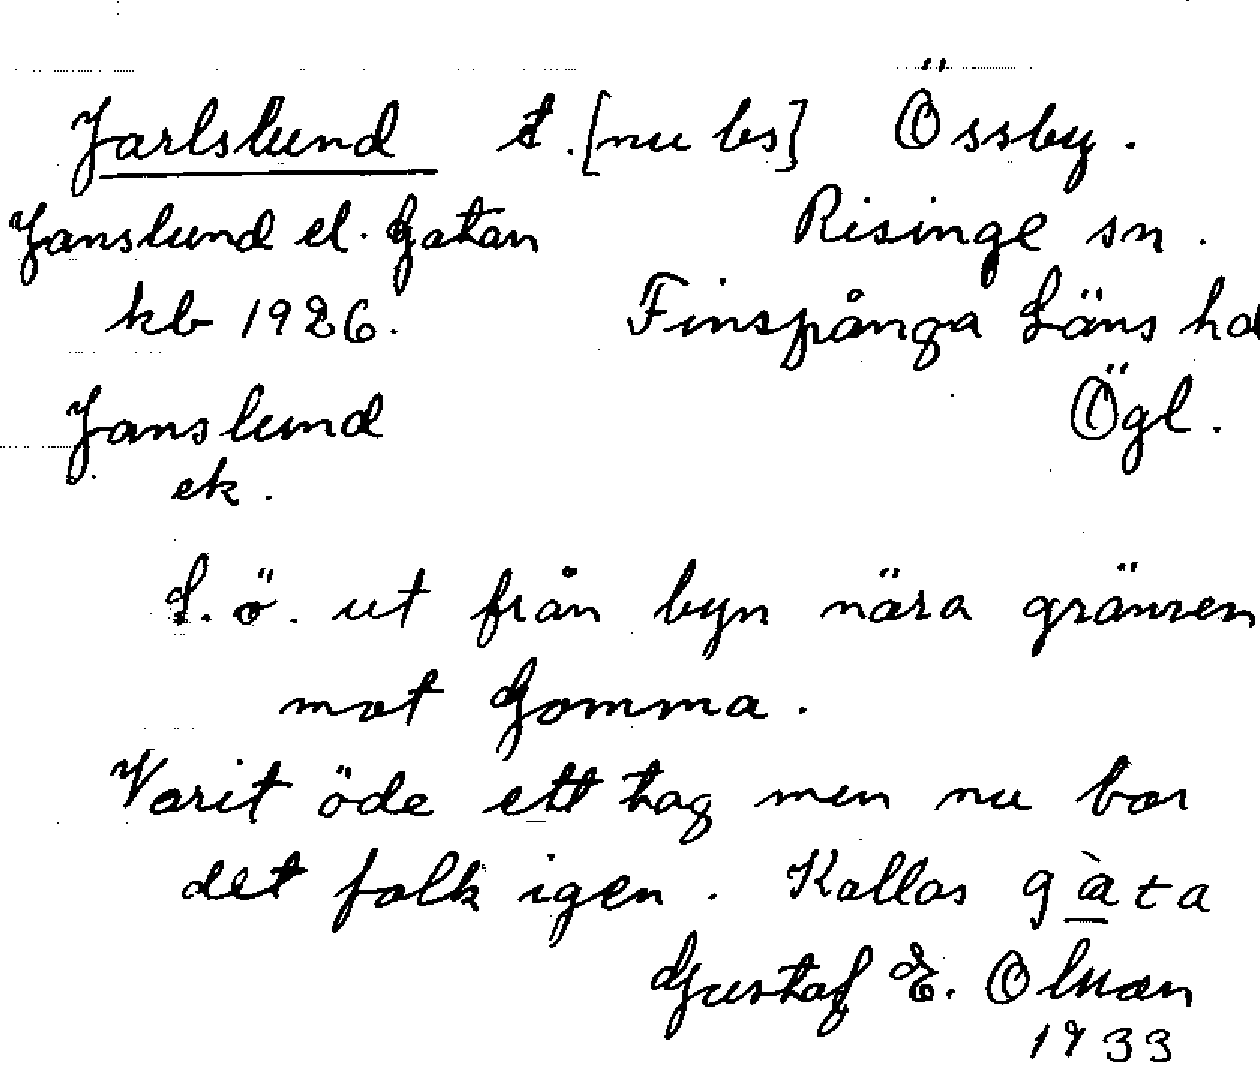 Jarlslund t. [nu bs] Össby.
Janslund el. Gatan Risinge sn.
kb 1926. Finspånga Läns hd
Janslund Ögl.
ek.
S.ö. ut från byn nära gränsen
mot Gomma.
Varit öde ett tag men nu bor
det folk igen. Kallas gàta
Gustaf E. Olman
1933